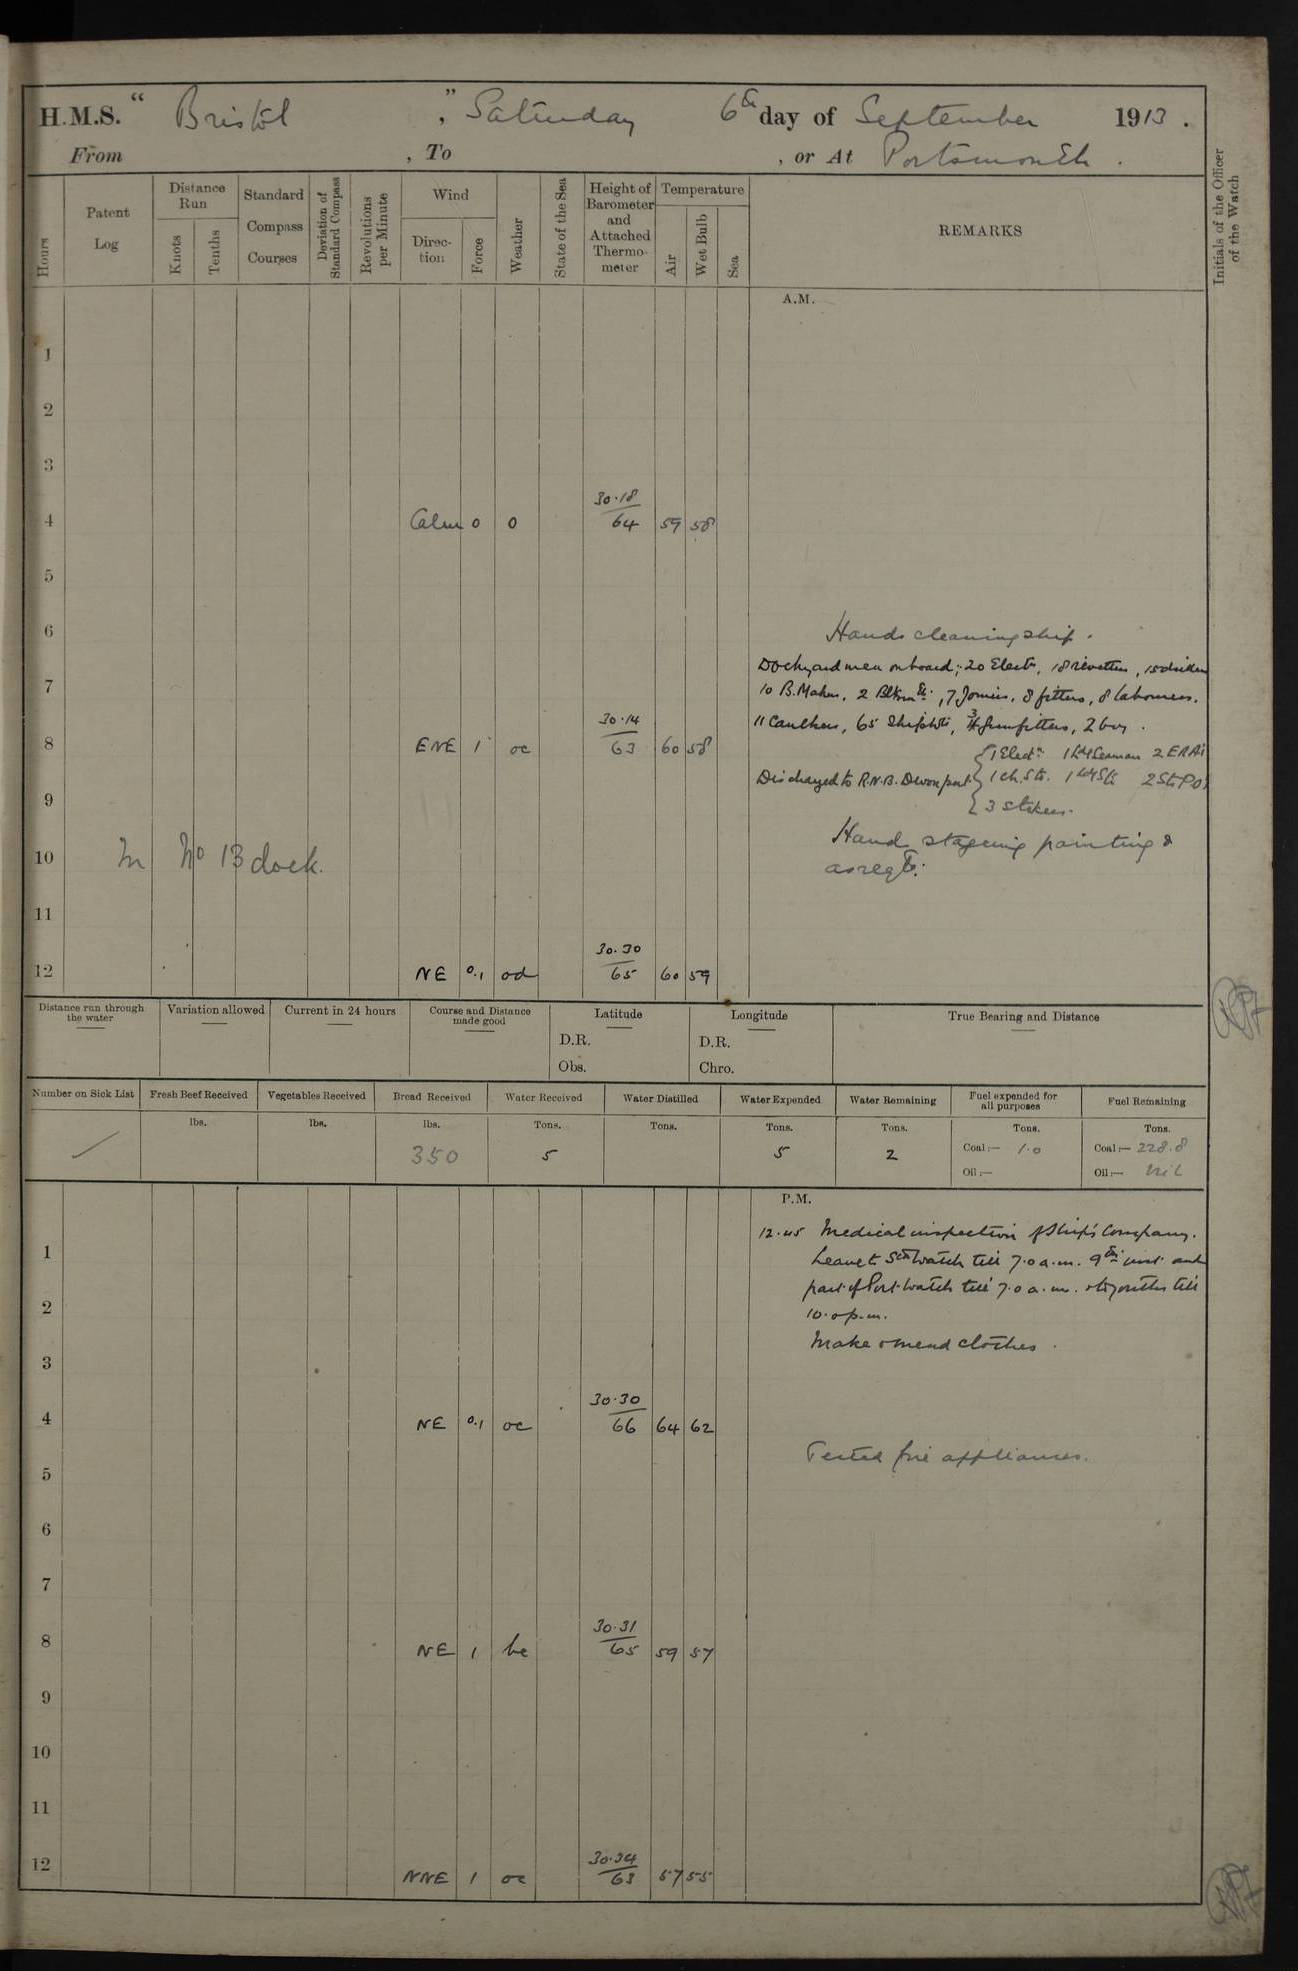 H.M.S. “ Bristol ”, Saturday 6th day of September 1913.
From , To , or At Portsmouth.
Hours
Patent Log
Distance Run
Knots
Tenths
Standard Compass Courses
Deviation of Standard Compass
Revolutions per Minute
Wind
Direc-tion
Force
Weather
State of the Sea
Height of Barometer and Attached Thermo-meter
Temperature
Air
Wet Bulb
Sea
REMARKS
Initials of the Officer of the Watch
A.M.
1
2
3
4 Calm 0 o 30.18 64 59 58
5
6 Hands cleaning ship.
Dockyard men onboard; 20 Elect", 18 rivetters, 15 drillers
7 10 B.Makers, 2 , 7 Joiners, 8 fitters, 8 labourers.
11 Caulkers, 65 Shipwts, 3 Gunfitters, 2 boys.
8 ENE 1 oc 30.14 63 60 58
1 Elect" 1 Ldg Seaman 2 ERA's
Discharged to R.N.B. Devonport 1 Ch. Sto. 1 Ldg Sto 2 Sto P.O's
3 Stokers.
9
Hands stageing painting &
10 In No 13 dock.
as reqte.
11
12 NE 0.1 od 30.30 65 60 59
Distance run through the water
Variation allowed
Current in 24 hours
Course and Distance made good
Latitude
D.R.
Obs.
Longitude
D.R.
Chro.
True Bearing and Distance
Number on Sick List
Fresh Beef Received
Vegetables Received
Bread Received
Water Received
Water Distilled
Water Expended
Water Remaining
Fuel expended for all purposes
Fuel Remaining
lbs. lbs. lbs. Tons. Tons. Tons. Tons. Tons. Tons.
350 5 5 2 Coal:— 1.0 Coal:— 228.8
Oil:— Oil:— Nil
P.M.
12.45 Medical inspection of Ship's Company.
1 Leave to Stn Watch till 7.0 a.m. 9th inst and
part of Port Watch till 7.0 a.m. & to youths till
2 10.0 p.m.
Make & mend clothes.
3
4 NE 0.1 oc 30.30 66 64 62
Tested fire appliances.
5
6
7
8 NE 1 bc 30.31 65 59 57
9
10
11
12 NNE 1 oc 30.34 63 57 55